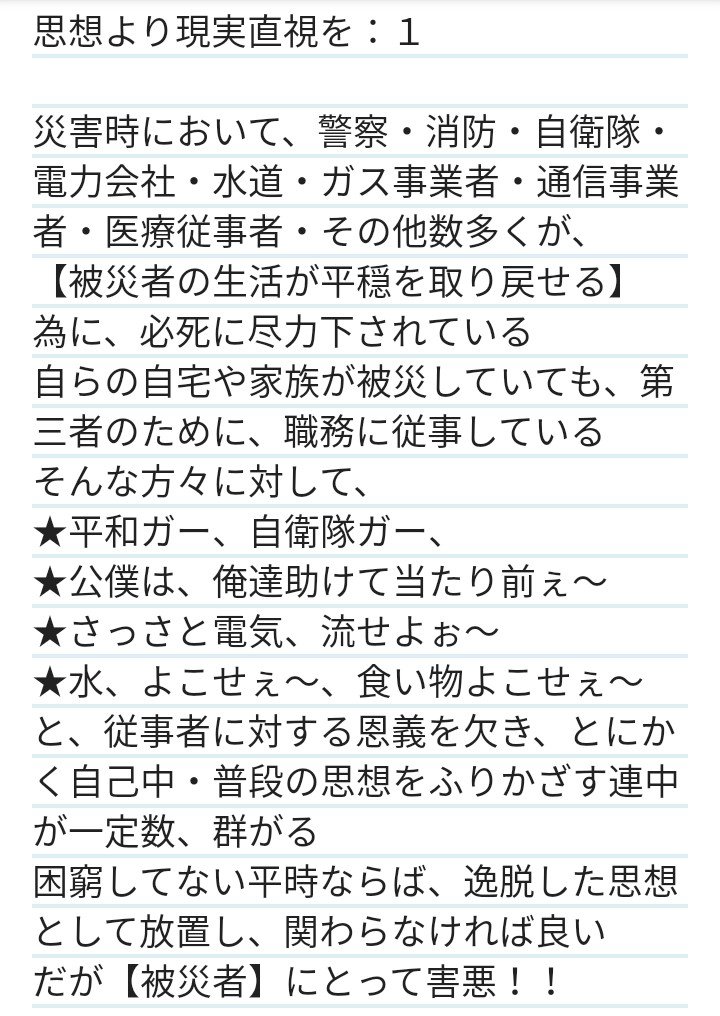 思想より現実直視を：１
災害時において、警察・消防・自衛隊・
電力会社・水道・ガス事業者・通信事業
者・医療従事者・その他数多くが、
【被災者の生活が平穏を取り戻せる】
為に、必死に尽力下されている
自らの自宅や家族が被災していても、第
三者のために、職務に従事している
そんな方々に対して、
★平和ガー、自衛隊ガー、
★公僕は、俺達助けて当たり前ぇ～
★さっさと電気、流せよぉ～
★水、よこせぇ～、食い物よこせぇ～
と、従事者に対する恩義を欠き、とにか
く自己中・普段の思想をふりかざす連中
が一定数、群がる
困窮してない平時ならば、逸脱した思想
として放置し、関わらなければ良い
だが【被災者】にとって害悪！！